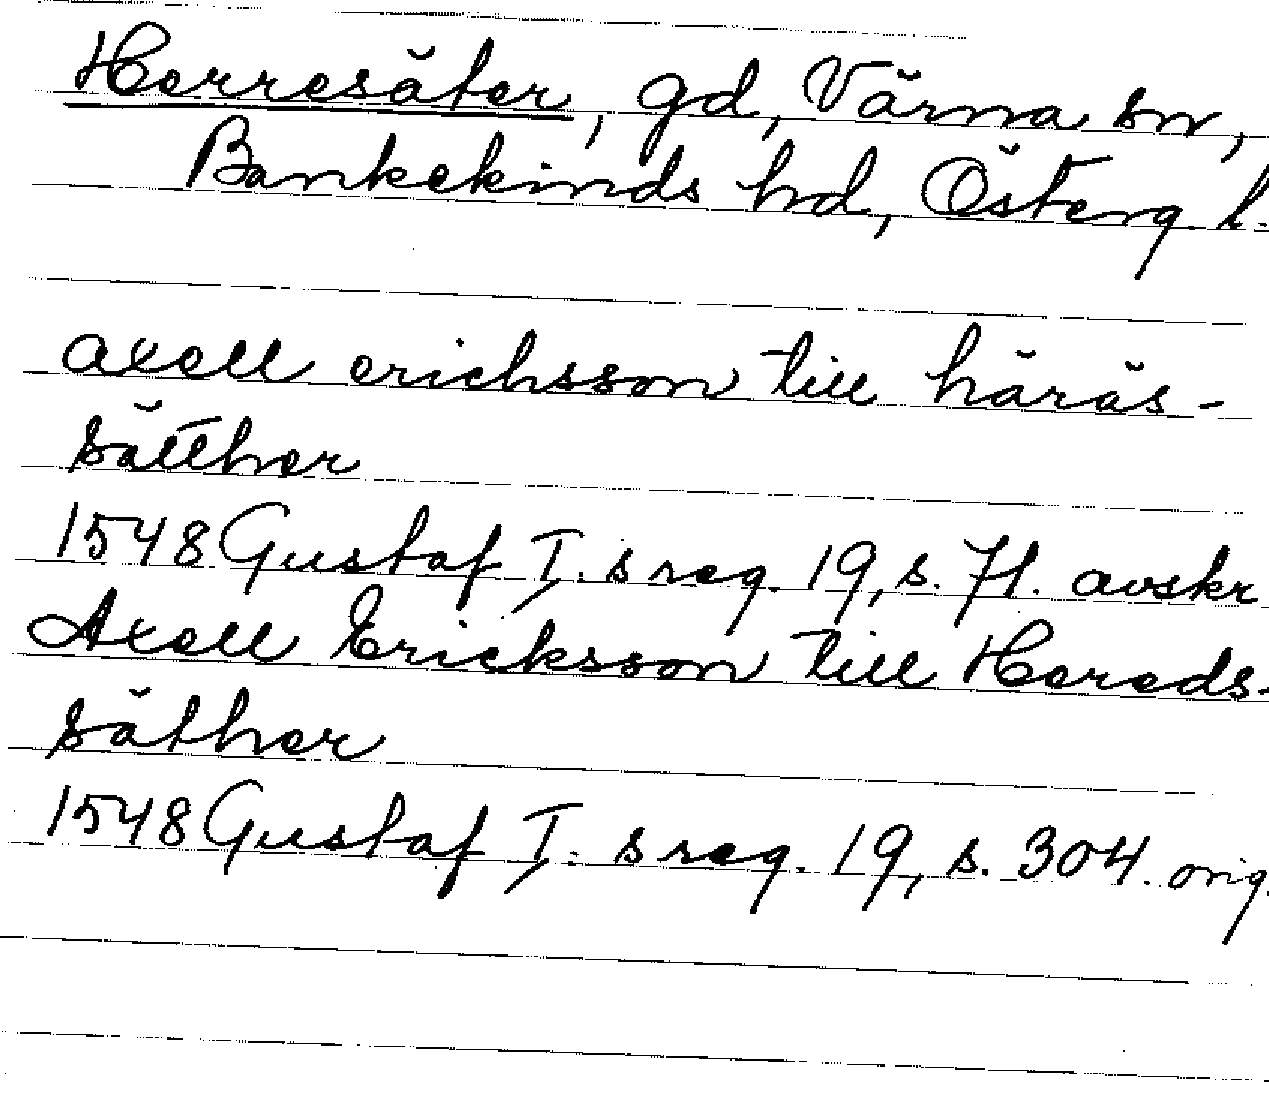 Herresäter, gd, Värna sn,
Bankekinds hd, Österg. l.
axell erichsson till häräs-
sätther
1548 Gustaf I:s reg. 19, s. 71. avskr
Axell Ericksson till Hereds-
säther
1548 Gustaf I:s reg. 19, s. 304. orig.